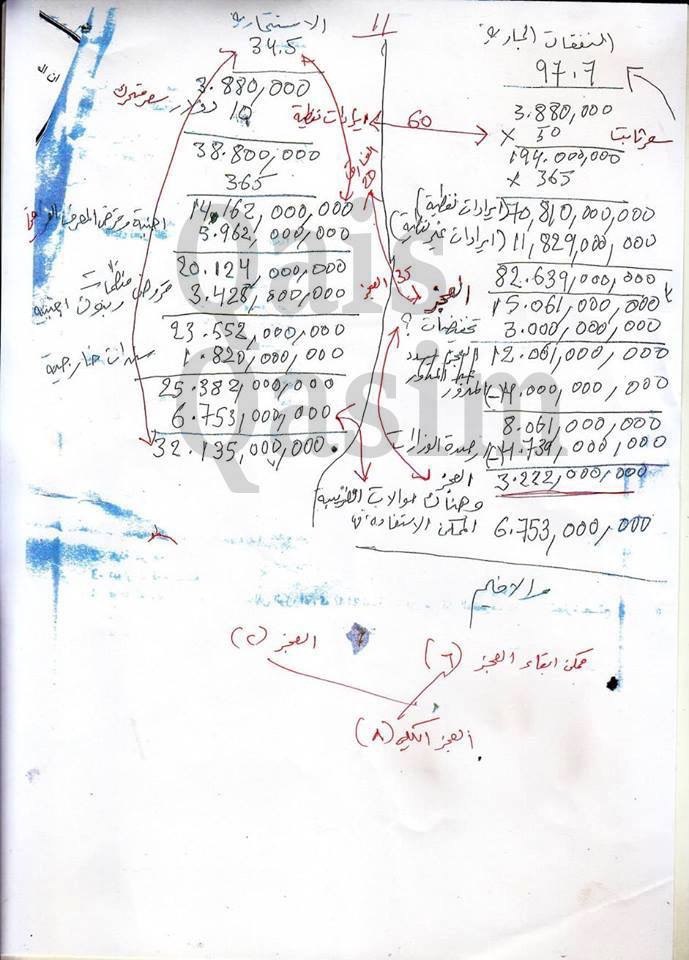 11
النفقات الجارية
97.7
3.880,000
× 50 سعر ثابت
194.000,000
× 365
70,810,000,000 (ايرادات نفطية)
11,829,000,000 (ايرادات غير نفطية)
82.639,000,000
العجز 15.061,000,000
تخفيضات ؟ 3.000,000,000
12.061,000,000
المدور (-) 4.000,000,000
8.061,000,000
ارصدة الوزارات (-) 4.739,000,000
العجز 3.222,000,000
وهناك حوالات
الممكن الاستفادة 6.753,000,000
الاستثمارية
34.5
3.880,000
10 دولار سعر متحرك
38.800,000
365
14.162,000,000
5.962,000,000
20.124,000,000
3.428,000,000
23.552,000,000
سندات خارجية 1.820,000,000
25.382,000,000
6.753,000,000
32.135,000,000
ايرادات نفطية
60
20
35 العجز
ممكن ابقاء العجز (٦)
العجز (٢)
العجز الكلي (٨)
Qais
Qasim